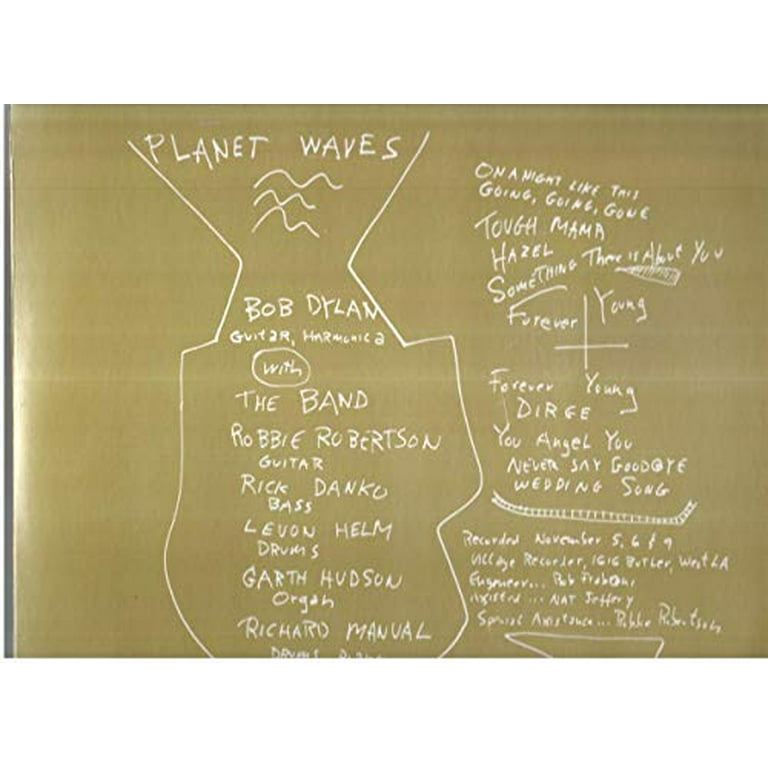 PLANET WAVES
BOB DYLAN
GUITAR, HARMONICA
with
THE BAND
ROBBIE ROBERTSON
GUITAR
RICK DANKO
BASS
LEVON HELM
DRUMS
GARTH HUDSON
Organ
RICHARD MANUAL
DRUMS
ON A NIGHT LIKE THIS
GOING, GOING, GONE
TOUGH MAMA
HAZEL
SOMETHING There is About You
Forever Young
Forever Young
DIRGE
You Angel You
NEVER SAY GOODBYE
WEDDING SONG
Recorded November 5, 6 & 9
Village Recorder, 1616 Butler, West LA
Engineer... Rob
Assisted... NAT Jeffery
Special Assistance... Robbie Robertson